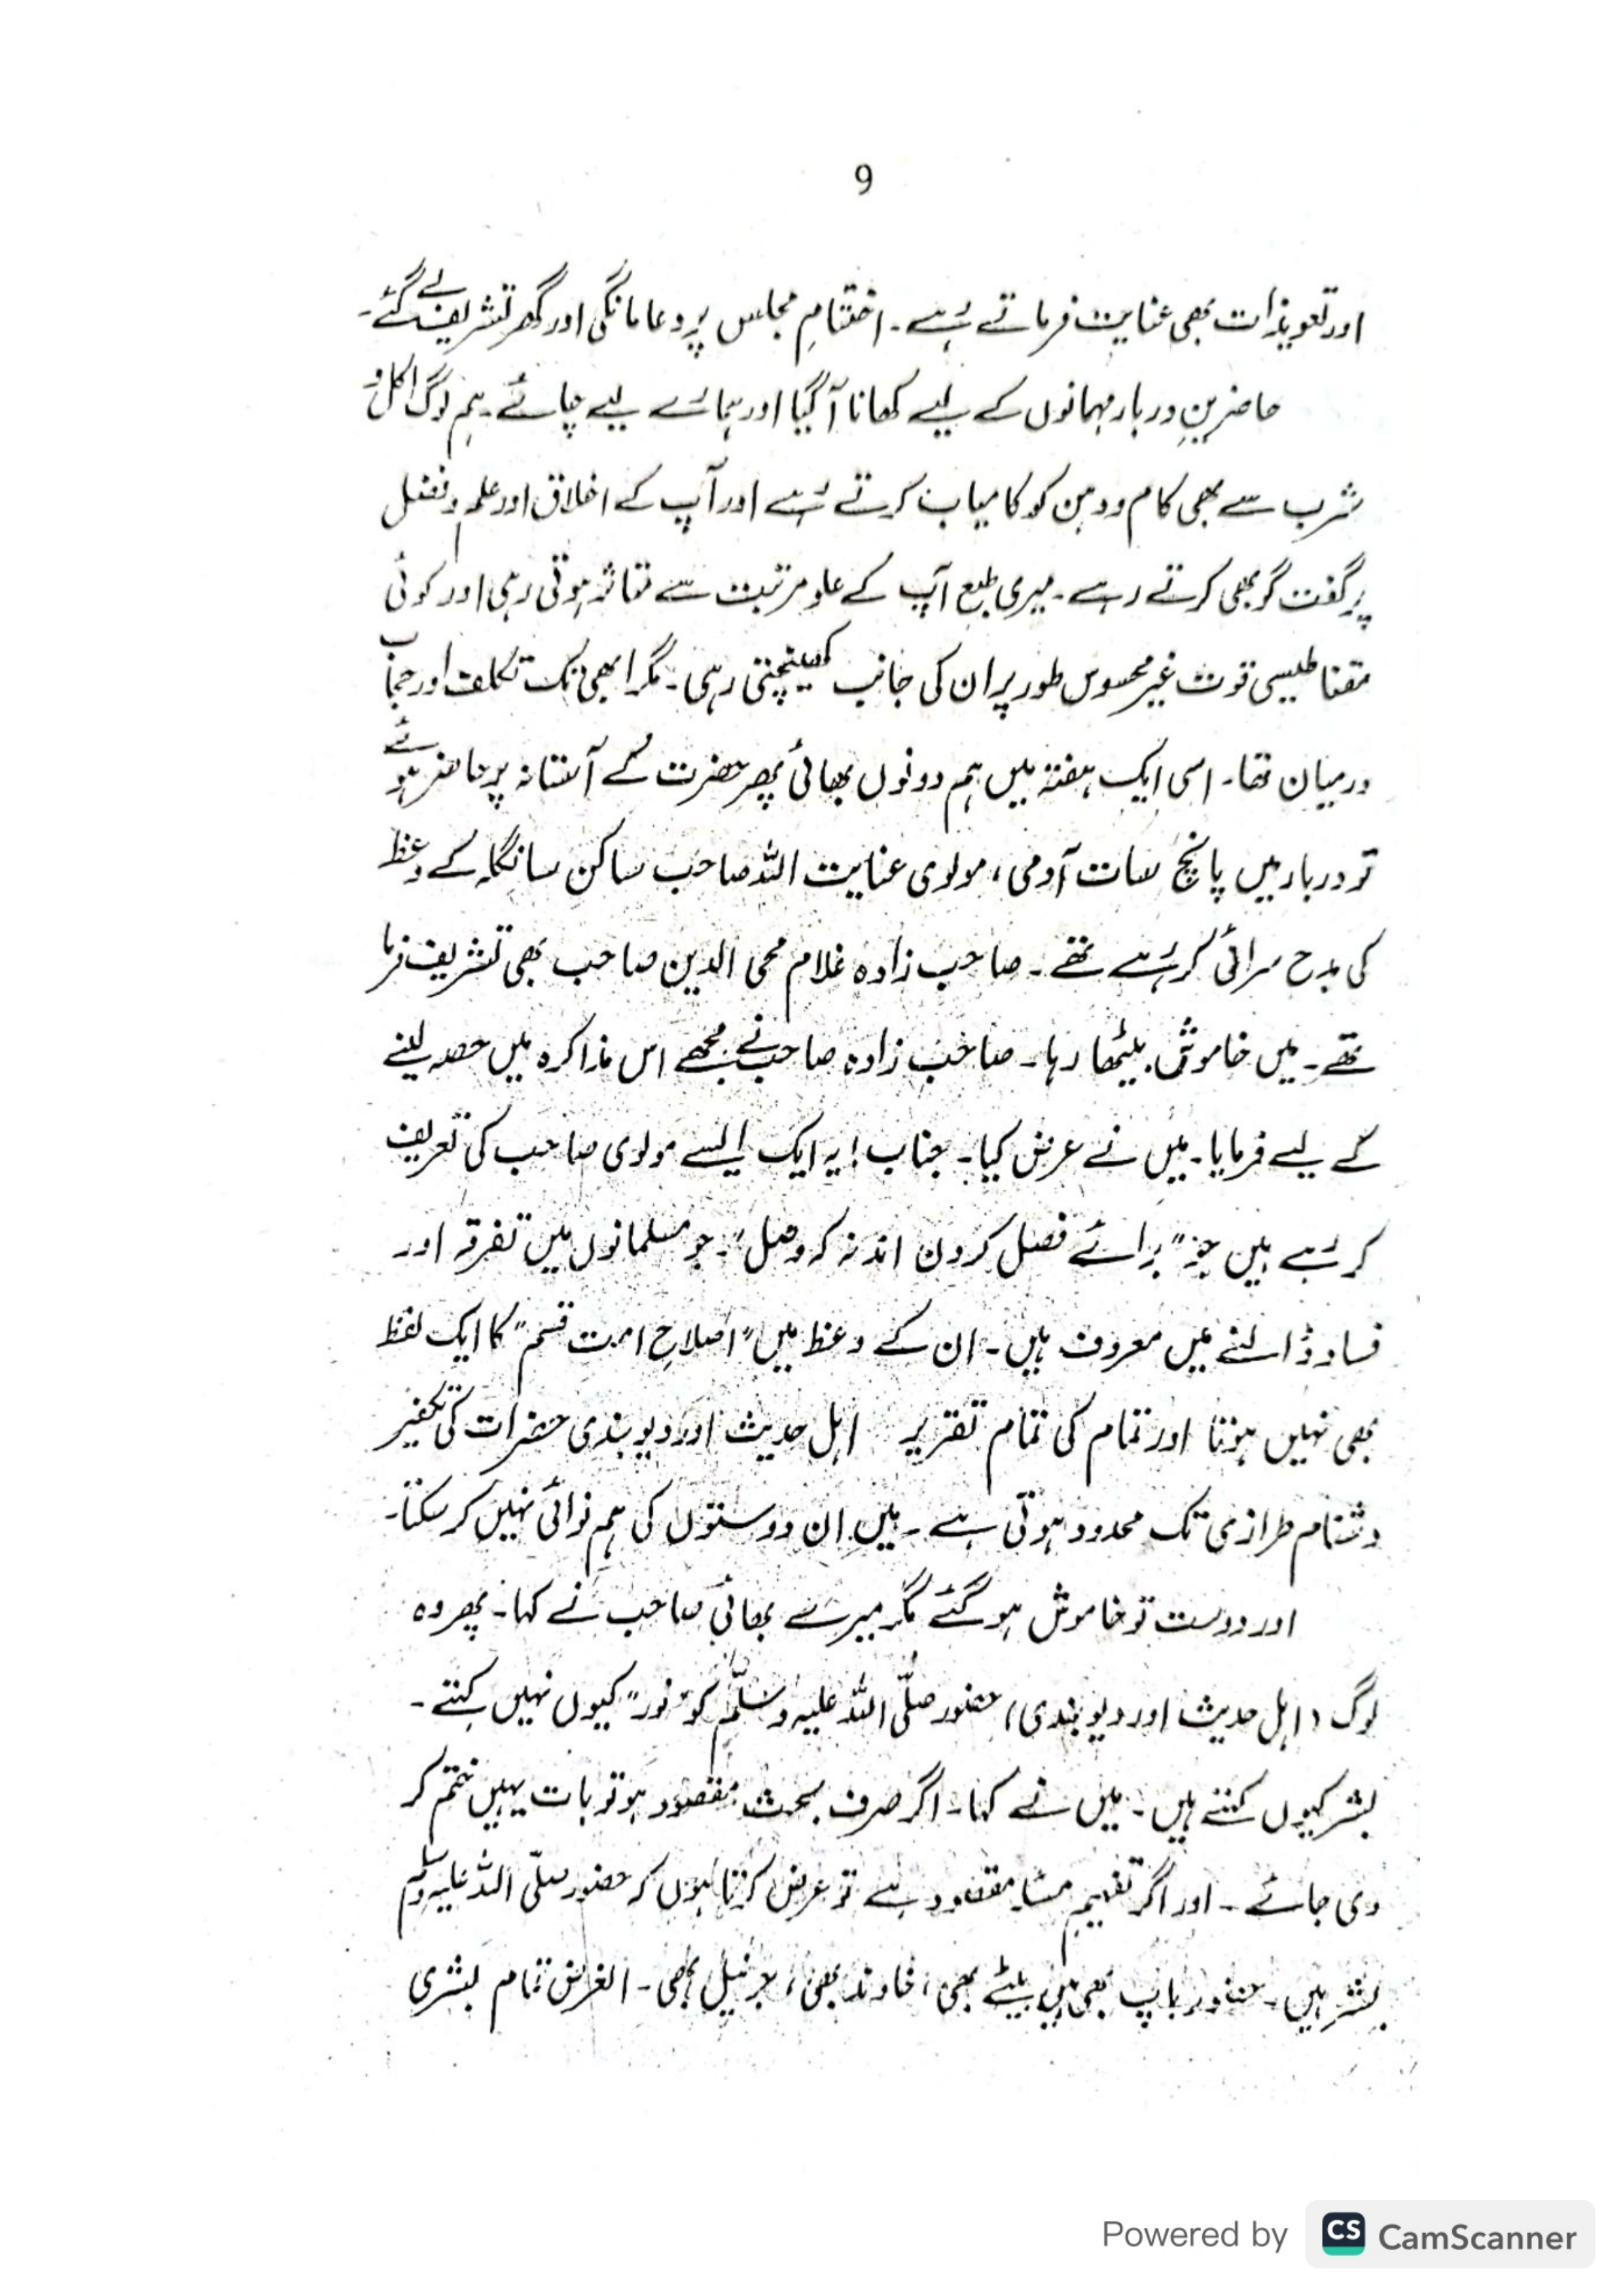 9
اور تعویذات بھی عنایت فرماتے رہے۔ اختتامِ مجلس پر دعا مانگی اور گھر تشریف لے گئے۔
حاضرینِ دربار مہمانوں کے لیے کھانا آگیا اور ہمارے لیے چائے۔ ہم لوگ اکل و
شرب سے بھی کام و دہن کو کامیاب کرتے رہے اور آپ کے اخلاق اور علم و فضل
پر گفت گو بھی کرتے رہے۔ میری طبع آپ کے علو مرتبت سے متاثر ہوتی رہی اور کوئی
مقناطیسی قوت غیر محسوس طور پر ان کی جانب کھینچتی رہی۔ مگر ابھی تک تکلف اور حجاب
درمیان تھا۔ اسی ایک ہفتہ میں ہم دونوں بھائی پھر حضرت کے آستانہ پر حاضر ہوئے
تو دربار میں پانچ سات آدمی، مولوی عنایت اللہ صاحب ساکن سانگلہ کے وعظ
کی مدح سرائی کر رہے تھے۔ صاحب زادہ غلام محی الدین صاحب بھی تشریف فرما
تھے۔ میں خاموش بیٹھا رہا۔ صاحب زادہ صاحب نے مجھے اس مذاکرہ میں حصہ لینے
کے لیے فرمایا۔ میں نے عرض کیا۔ جناب! یہ ایک ایسے مولوی صاحب کی تعریف
کر رہے ہیں جو "برائے فصل کردن اند نہ کہ وصل"۔ جو مسلمانوں میں تفرقہ اور
فساد ڈالنے میں معروف ہیں۔ ان کے وعظ میں "اصلاحِ امت قسم" کا ایک لفظ
بھی نہیں ہوتا اور تمام کی تمام تقریر اہل حدیث اور دیوبندی حضرات کی تکفیر
دشنام طرازی تک محدود ہوتی ہے۔ میں ان دوستوں کی ہم نوائی نہیں کر سکتا۔
اور دوست تو خاموش ہو گئے مگر میرے بھائی صاحب نے کہا۔ پھر وہ
لوگ (اہل حدیث اور دیوبندی) حضور صلّی اللہ علیہ وسلّم کو "نور" کیوں نہیں کہتے۔
بشر کیوں کہتے ہیں۔ میں نے کہا۔ اگر صرف بحث مقصود ہو تو بات یہیں ختم کر
دی جائے۔ اور اگر تفہیم مسئلہ مقصود ہے تو عرض کرتا ہوں کہ حضور صلّی اللہ علیہ وسلم
بشر ہیں۔ حضور باپ بھی ہیں بیٹے بھی، خاوند بھی، جرنیل بھی۔ الغرض تمام بشری
Powered by CS CamScanner